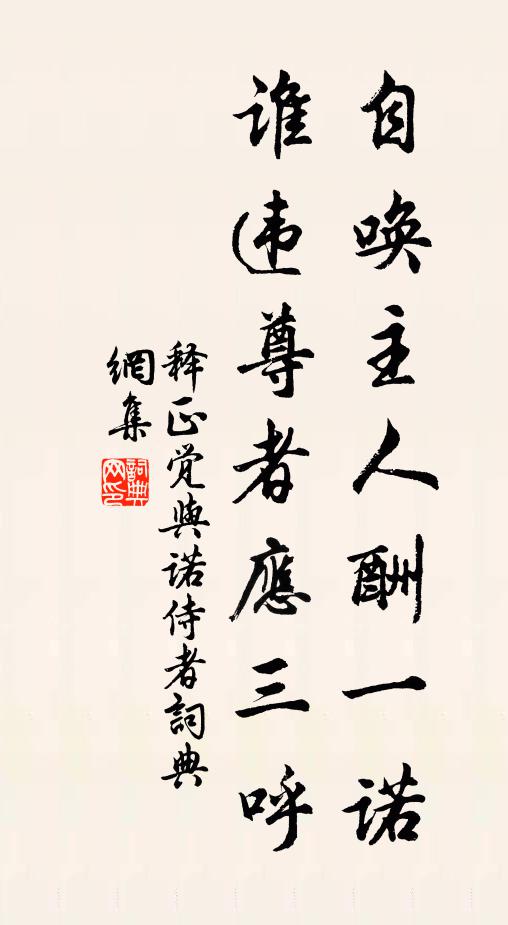 自唤主人酬一诺
谁违尊者應三呼
释正觉與诺侍者詞典
網集
詞典网印